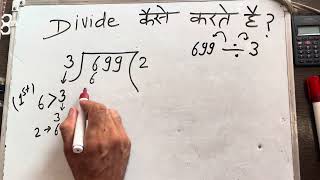 Divide कैसे करते है?
699 ÷ 3
3 ) 699 ( 2
6
(1st) 6 > 3
3
2 → 6